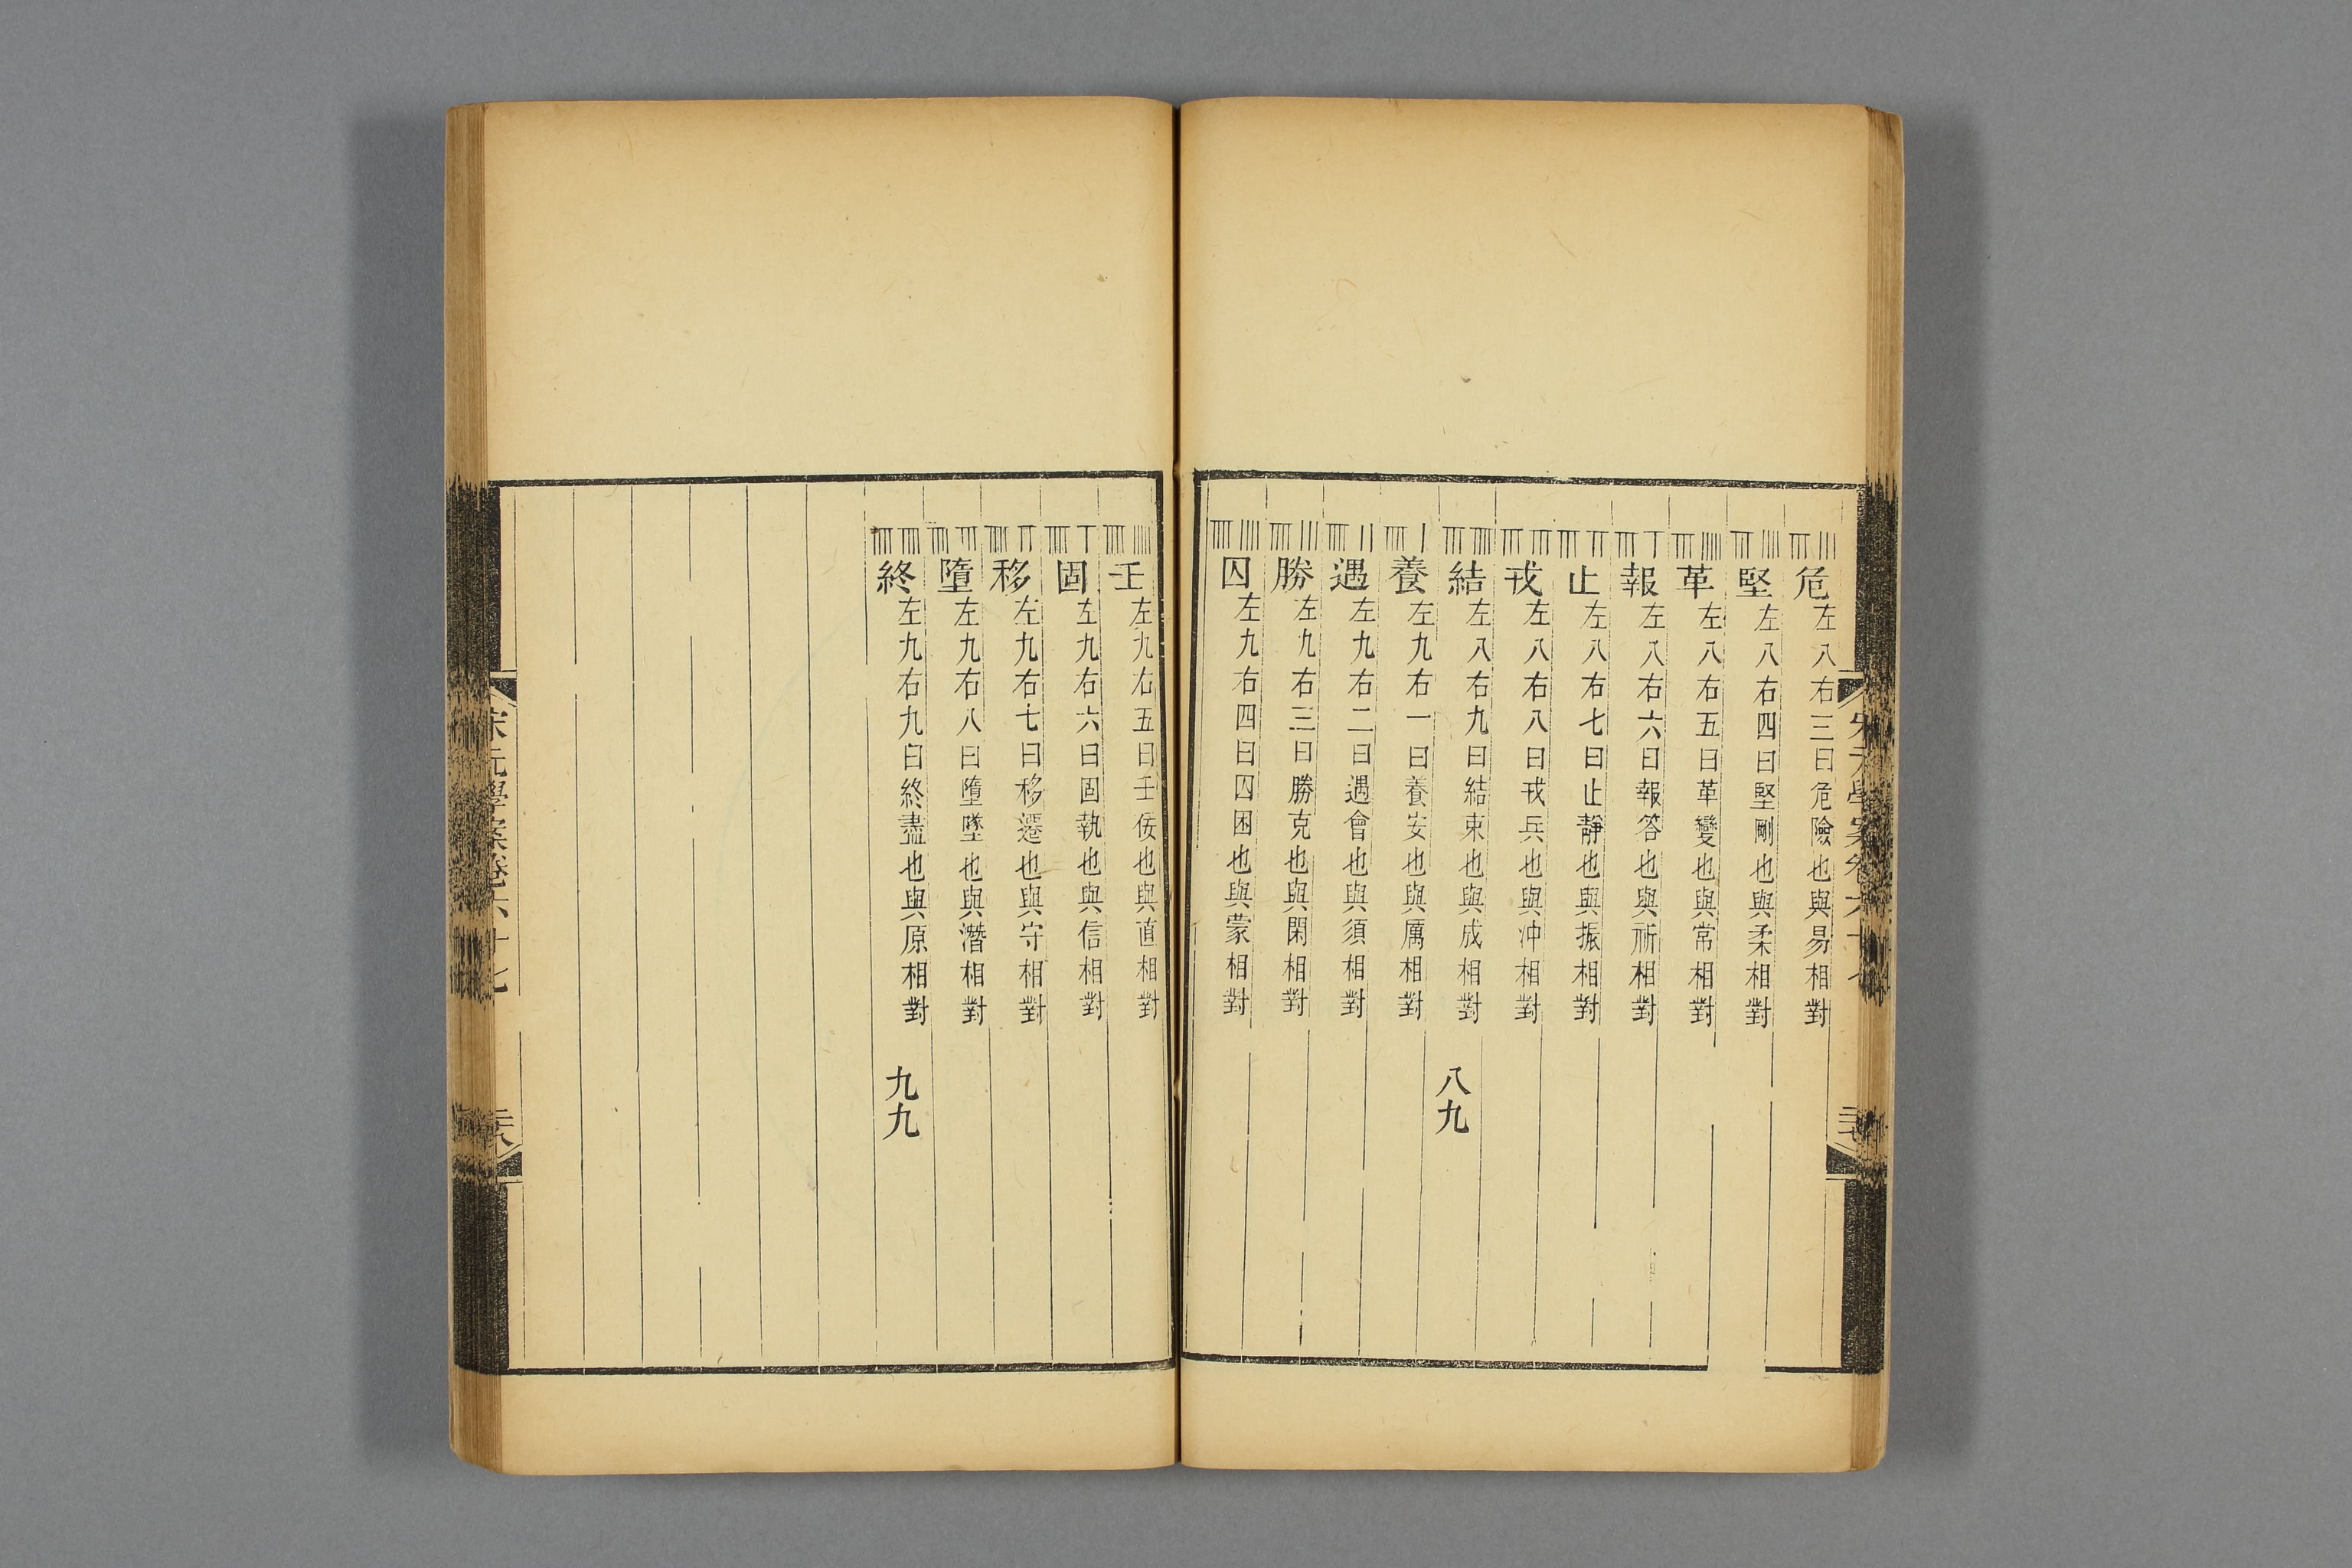 危左八右三曰危險也與易相對
堅左八右四曰堅剛也與柔相對
革左八右五曰革變也與常相對
報左八右六曰報答也與祈相對
止左八右七曰止靜也與振相對
戎左八右八曰戎兵也與沖相對
結左八右九曰結束也與成相對 八九
養左九右一曰養安也與厲相對
遇左九右二曰遇會也與須相對
勝左九右三曰勝克也與閑相對
囚左九右四曰囚困也與蒙相對
壬左九右五曰壬佞也與直相對
固左九右六曰固執也與信相對
移左九右七曰移遷也與守相對
墮左九右八曰墮墜也與潛相對
終左九右九曰終盡也與原相對 九九
宋元學案卷六十七